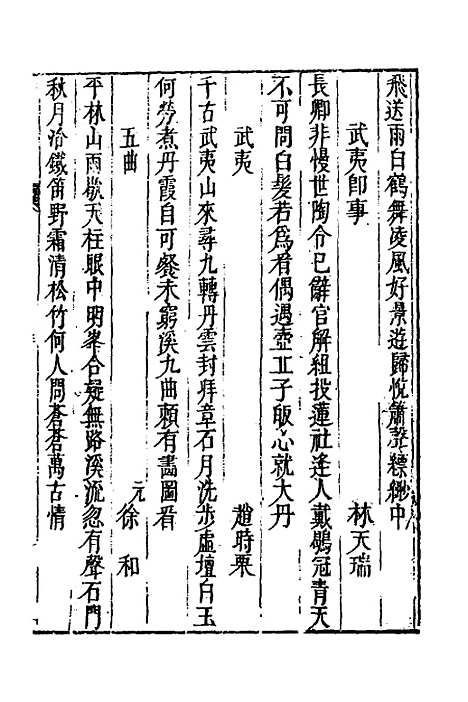 飛送雨白鶴舞凌風好景遊歸悅簫聲縹緲中
武夷卽事 林天瑞
長卿非慢世陶令已辭官解組投蓮社逢人戴鶡冠青天
不可問白髮若爲看偶遇壺丘子皈心就大丹
武夷 趙時栗
千古武夷山來尋九轉丹雲封拜章石月洗步虛壇白玉
何勞煮丹霞自可餐未窮溪九曲賴有畵圖看
五曲 元徐和
平林山雨歇天柱眼中明峯合疑無路溪流忽有聲石門
秋月冷鐵笛野霜清松竹何人問蒼蒼萬古情